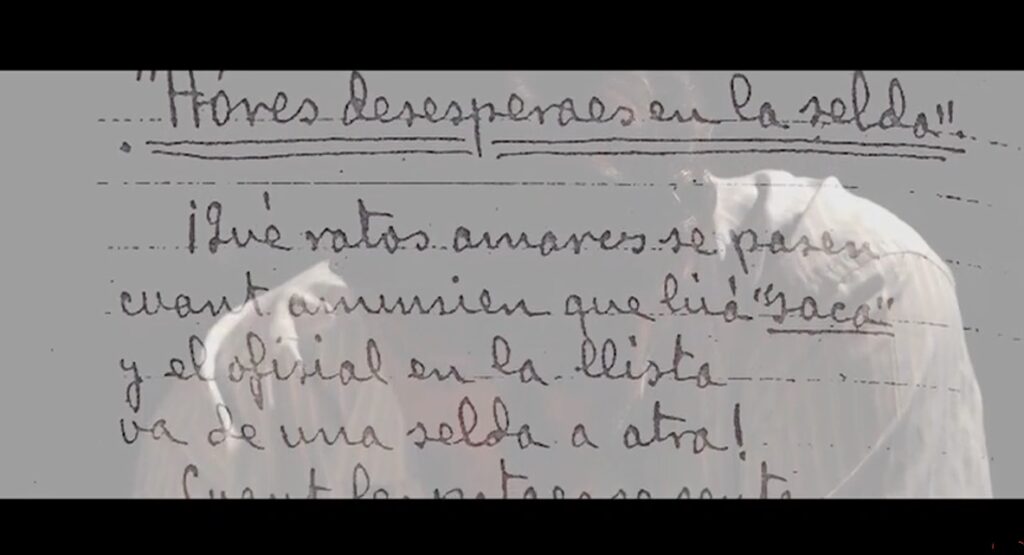 "Hóres desesperaes en la selda".
¡Qué ratos amares se pasen
cuant anunsien que liá "saca"
y el ofisial en la llista
va de una selda a atra!
Cuant